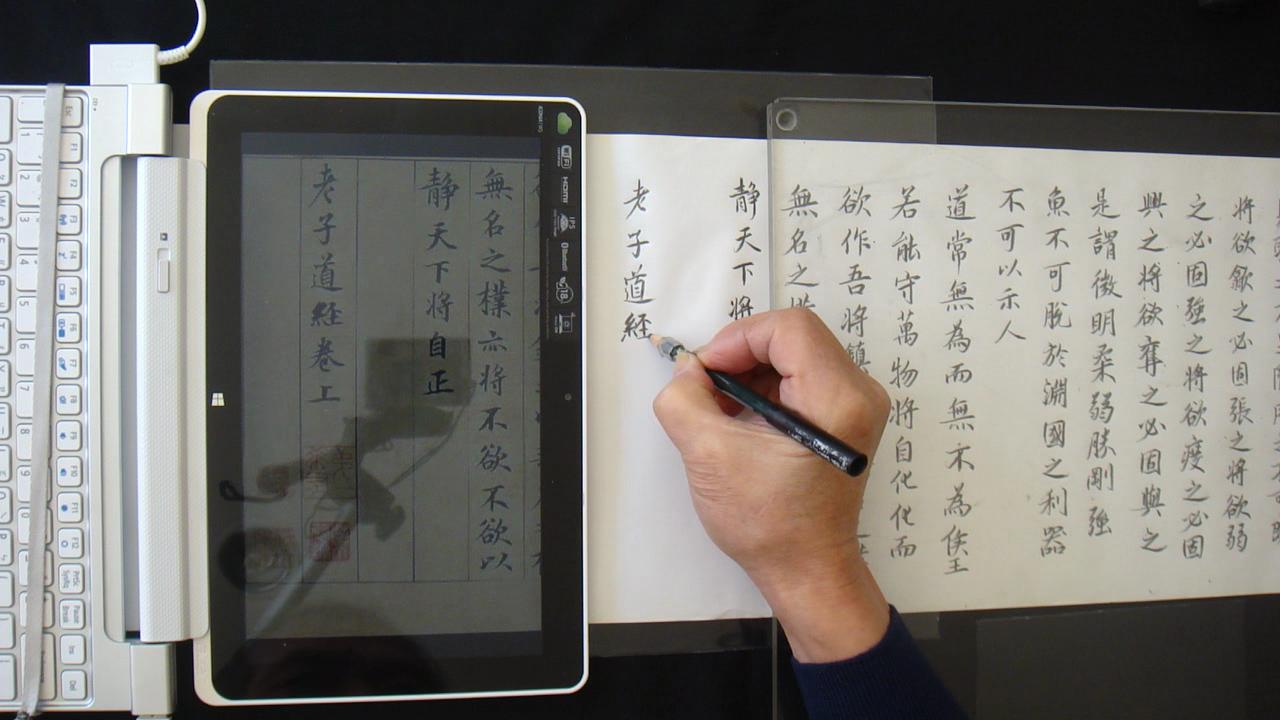 將欲歙之必固張之將欲弱
之必固強之將欲廢之必固
興之將欲奪之必固與之
是謂微明柔弱勝剛強
魚不可脫於淵國之利器
不可以示人
道常無為而無不為侯王
若能守萬物將自化化而
欲作吾將鎮
無名之樸
静天下將
老子道經
無名之樸亦將不欲不欲以
静天下將自正
老子道經卷上